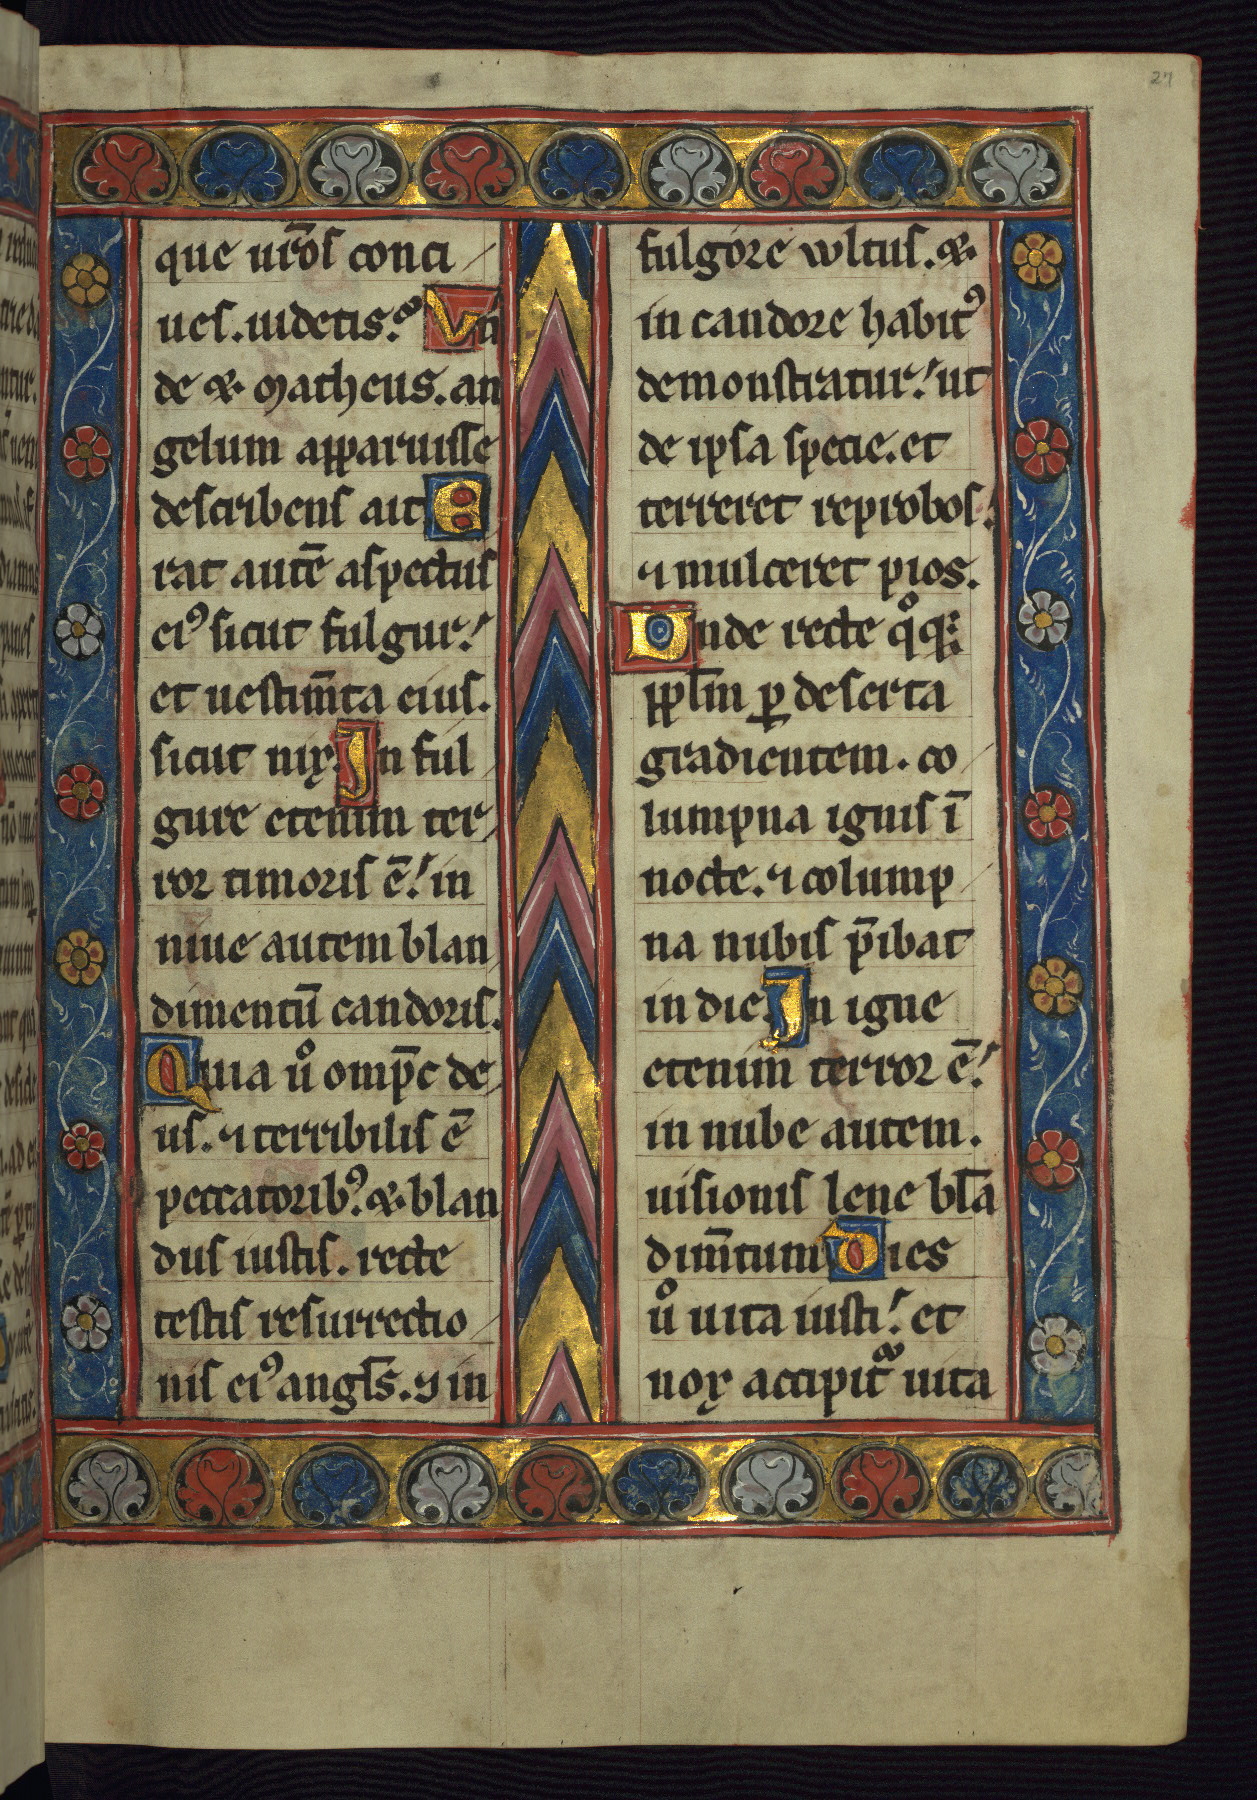 27
que ur̄os conci
ues. uidetis. Vn
de & Matheus. an
gelum apparuisse
describens ait E
rat autē aspectus
ei⁹ sicut fulgur!
et uestim̄ta eius.
sicut nix. In ful
gure etenim ter
ror timoris ē! in
niue autem blan
dimentū candoris.
Quia uͦ omp̄c de
us. ⁊ terribilis ē
peccatorib⁹. & blan
dus iustis. recte
testis resurrectio
nis ei⁹ angl̄s. ⁊ in
fulgore wltus. &
in candore habit⁹
demonstratur! ut
de ipsa specie. et
terreret reprobos!
⁊ mulceret pios.
Unde recte qͦq;
ppl̄m ꝑ deserta
gradientem. co
lumpna ignis ī
nocte. ⁊ colump
na nubis p̄ibat
in die. In igne
etenim terror ē!
in nube autem.
uisionis lene bl̄a
dim̄tum Dies
uͦ uita iusti! et
nox accipit᷑ uita